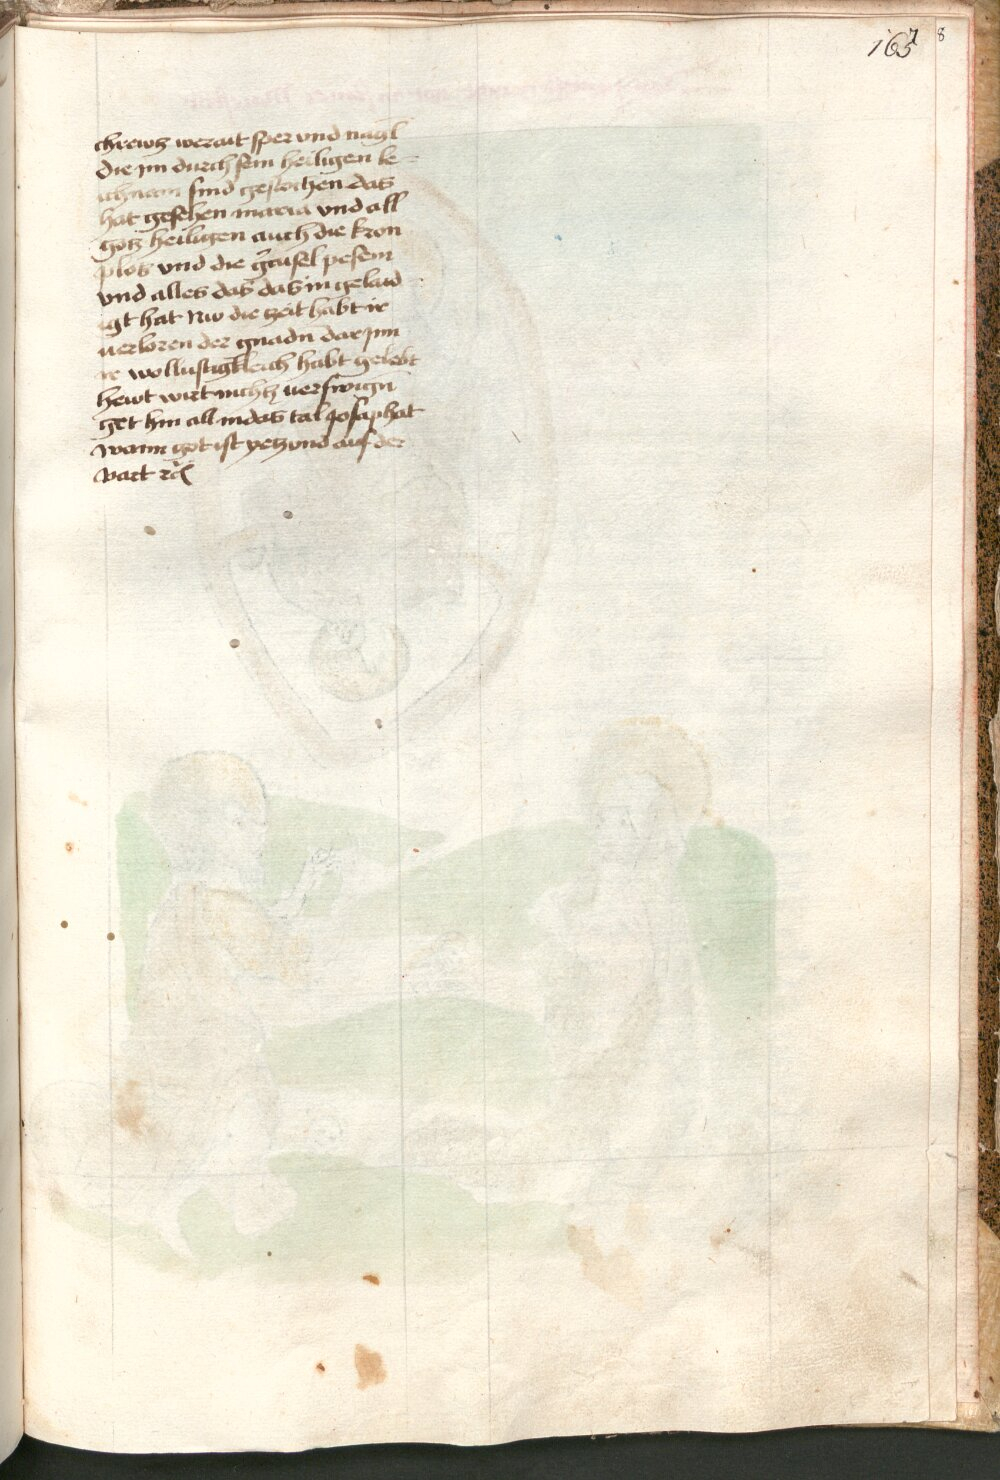 165 7 8
chrewtz werait sper vnd nagl
die jm durch sein heiligen le=
ichnam sind gestochen das
hat gesehen maria vnd all
gotz heiligen auch die kron
plos vnd die gaisel pesem
vnd alles das das in gelaid=
igt hat Nw die zeit habt ir
verloren der gnadn dar jnn
ir wollustigkleich habt gelebt
hewt wirt nichtz verswign
get hin all in das tal Josaphat
wann got ist yetzund auf der
vart rc